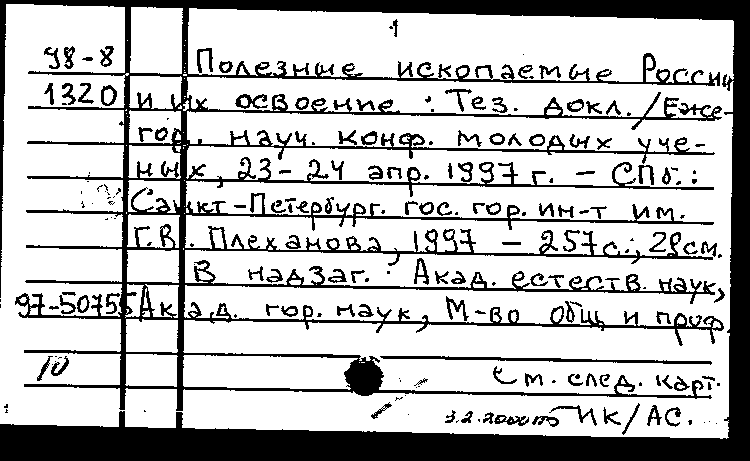 1
98-8 Полезные ископаемые России
1320 и их освоение : Тез. докл. / Еже-
год. науч. конф. молодых уче-
ных, 23-24 апр. 1997 г. - СПб.:
Санкт-Петербург. гос. гор. ин-т им.
Г.В. Плеханова, 1997 - 257с.; 29см.
В надзаг. : Акад. естеств. наук,
97-50755 Акад. гор. наук, М-во общ. и проф.
10 См. след. карт.
ИК/АС.